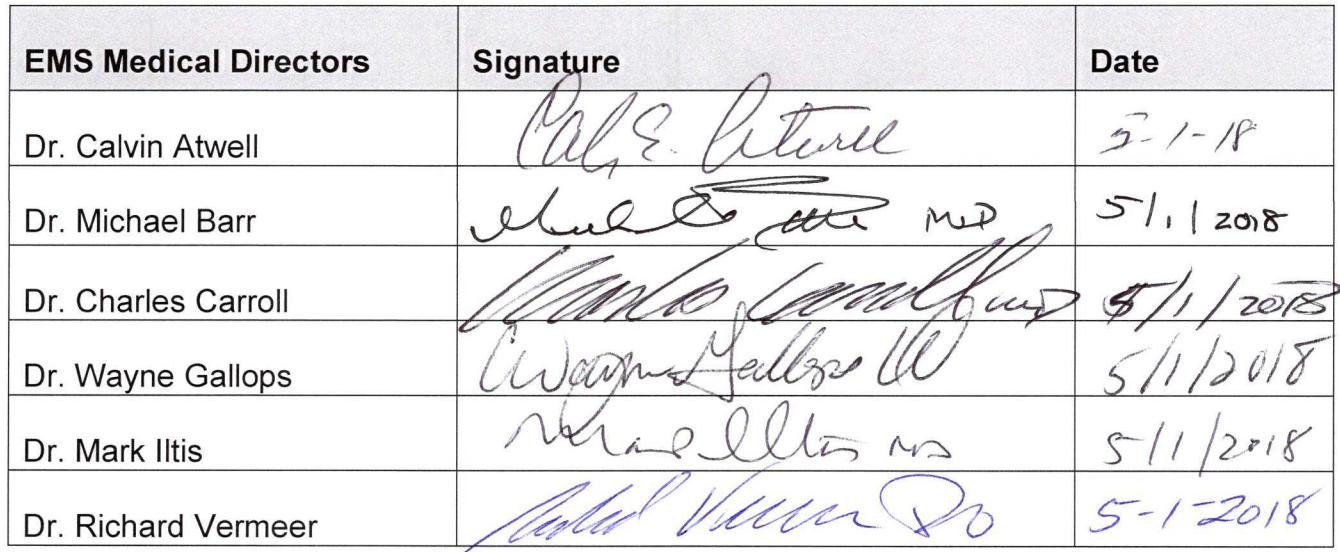 EMS Medical Directors Signature Date
Dr. Calvin Atwell Cal E. Atwell 5-1-18
Dr. Michael Barr MD 5/1/2018
Dr. Charles Carroll Charles Carroll MD 5/1/2018
Dr. Wayne Gallops Wayne Gallops III 5/1/2018
Dr. Mark Iltis Mark Iltis MD 5/1/2018
Dr. Richard Vermeer DO 5-1-2018